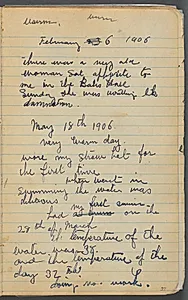 February 6 1906
there was a
woman sat opposite to
me in the
Sunday she was
damnation.
May 18th 1906
very warm day
wore my straw hat for
the first time
went in
swimming the water was
delicious
my first swim
had on the
28th of March
temperature of the
water was 37
and the temperature of the
day 32
doing no work.